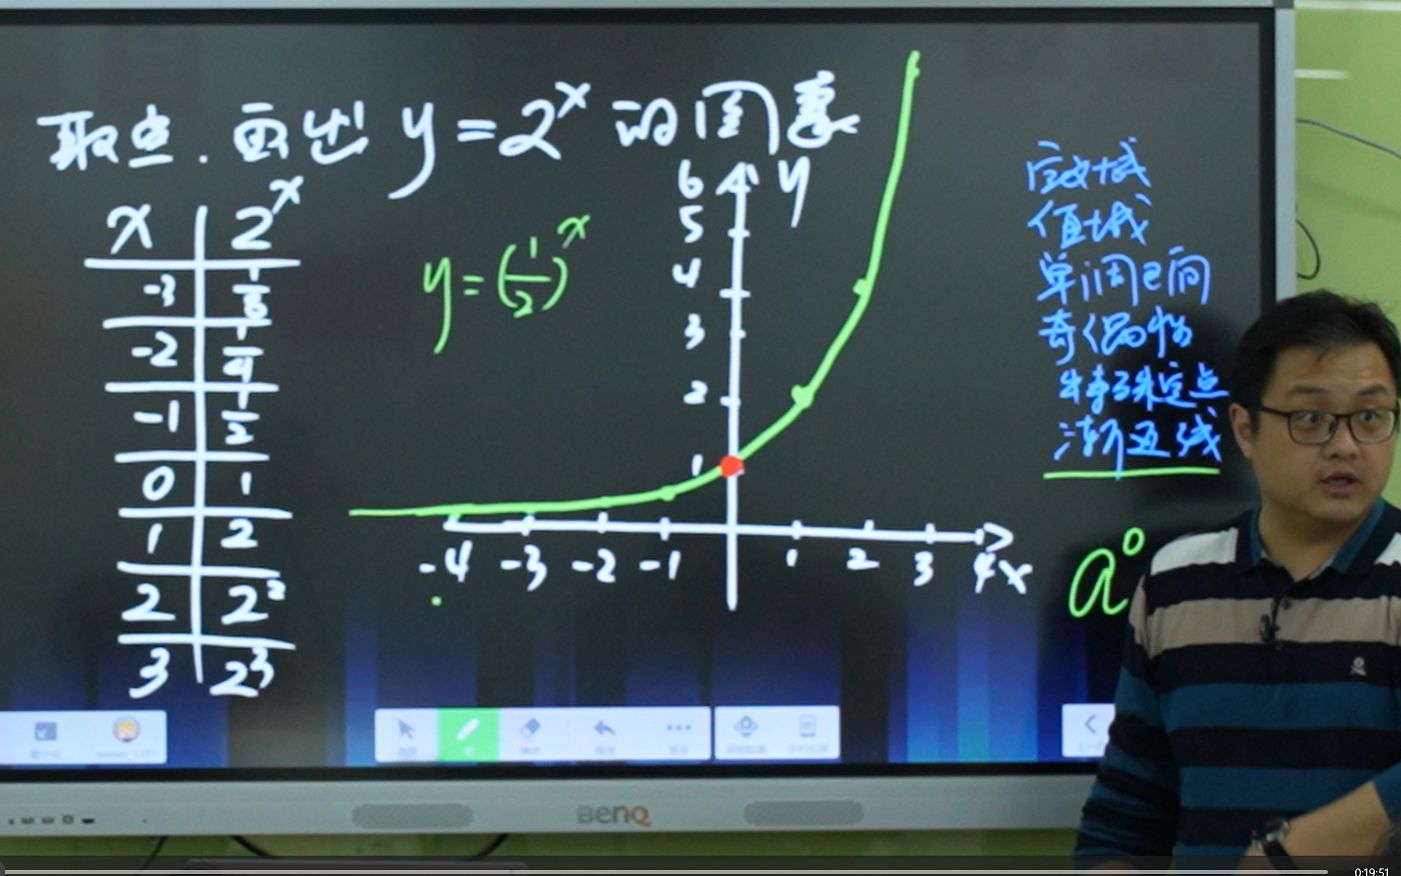 取点.画出 y=2^x 的图象
x 2^x
-3 1/8
-2 1/4
-1 1/2
0 1
1 2
2 2^2
3 2^3
y=(1/2)^x
6 y
5
4
3
2
1
-4 -3 -2 -1 1 2 3 4 x
定义域
值域
单调区间
奇偶性
特殊定点
渐近线
a^0
BenQ
0:19:51